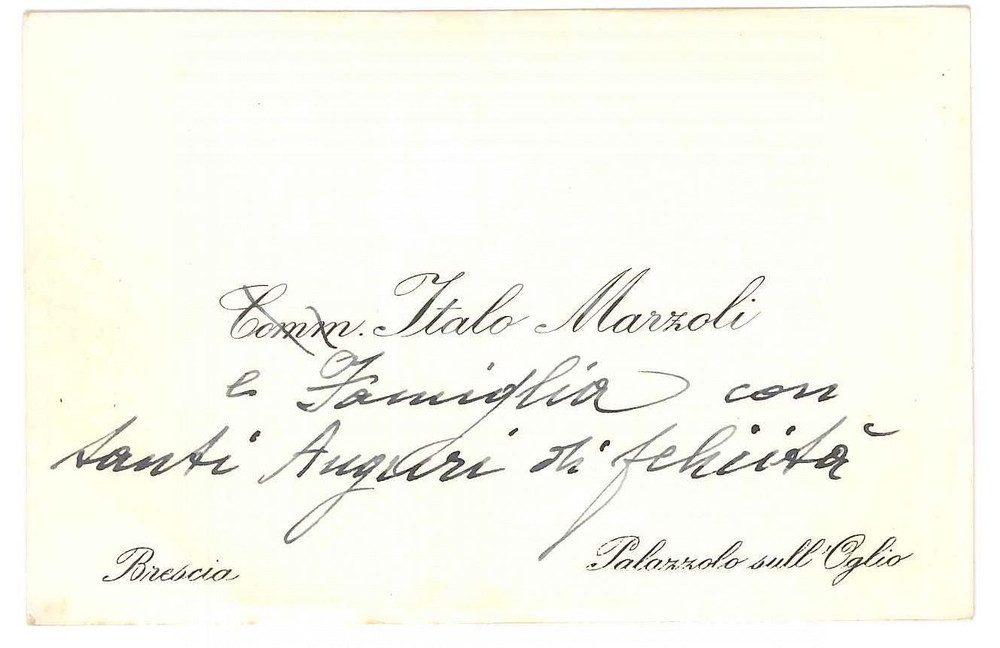 Comm. Italo Marzoli
e Famiglia con
tanti Auguri di felicità
Brescia Palazzolo sull'Oglio